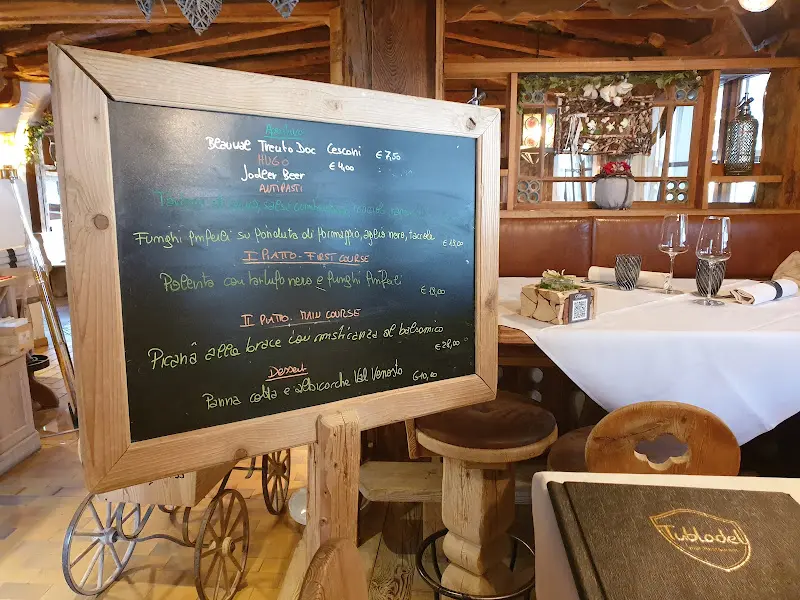 Aperitivo
Blauwal Trento Doc Cesconi € 7,50
HUGO € 4,00
Jodler Beer
ANTIPASTI
Funghi finferli su fonduta di formaggio, aglio nero, taccole € 18,00
I PIATTO - FIRST COURSE
Polenta con tartufo nero e funghi finferli € 18,00
II PIATTO - MAIN COURSE
Picanã alla brace con misticanza al balsamico € 28,00
Dessert
Panna cotta e albicocche Val Venosta € 10,00
Tublodel